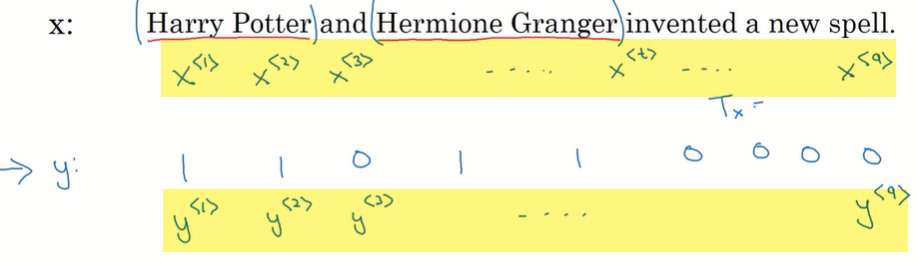 x: (Harry Potter) and (Hermione Granger) invented a new spell.
x<1> x<2> x<3> ..... x<t> .... x<9>
Tx =
→ y: 1 1 0 1 1 0 0 0 0
y<1> y<2> y<3> .... y<9>